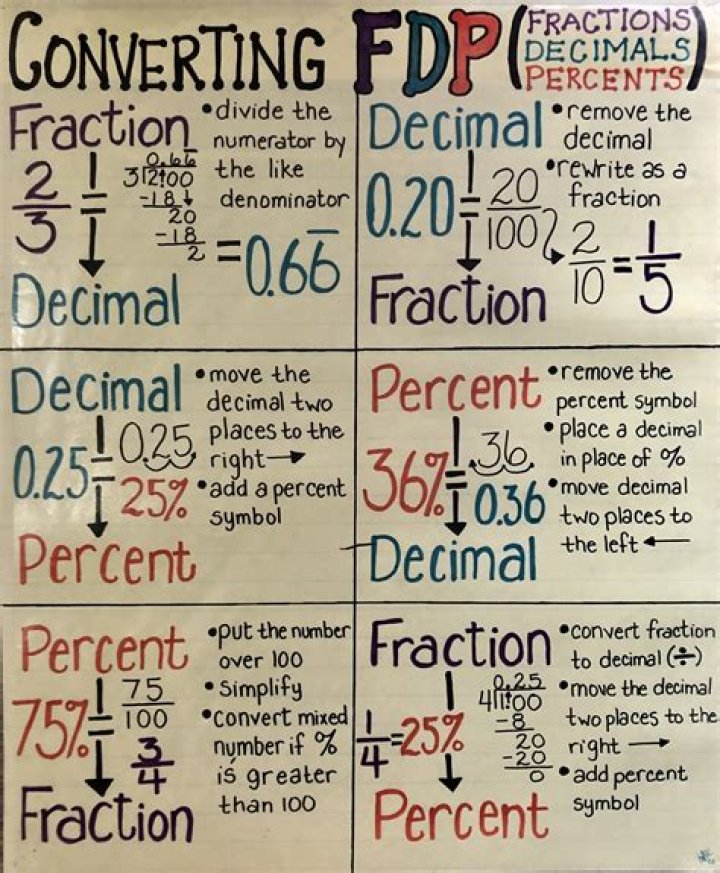 CONVERTING FDP (FRACTIONS
DECIMALS
PERCENTS)
Fraction
• divide the
numerator by
the like
denominator
2/3 =
0.66
3⟌2.00
-18↓
20
-18
2
= 0.66̅
Decimal
Decimal
• remove the
decimal
• rewrite as a
fraction
0.20 = 20/100
2/10 = 1/5
Fraction
Decimal
• move the
decimal two
places to the
right →
• add a percent
symbol
0.25 = 0.25
25%
Percent
Percent
• remove the
percent symbol
• place a decimal
in place of %
• move decimal
two places to
the left ←
36% = .36.
0.36
Decimal
Percent
• put the number
over 100
• Simplify
• convert mixed
number if %
is greater
than 100
75% = 75/100
3/4
Fraction
Fraction
• convert fraction
to decimal (÷)
• move the decimal
two places to the
right →
• add percent
symbol
1/4 = 25%
0.25
4⟌1.00
-8
20
-20
0
Percent